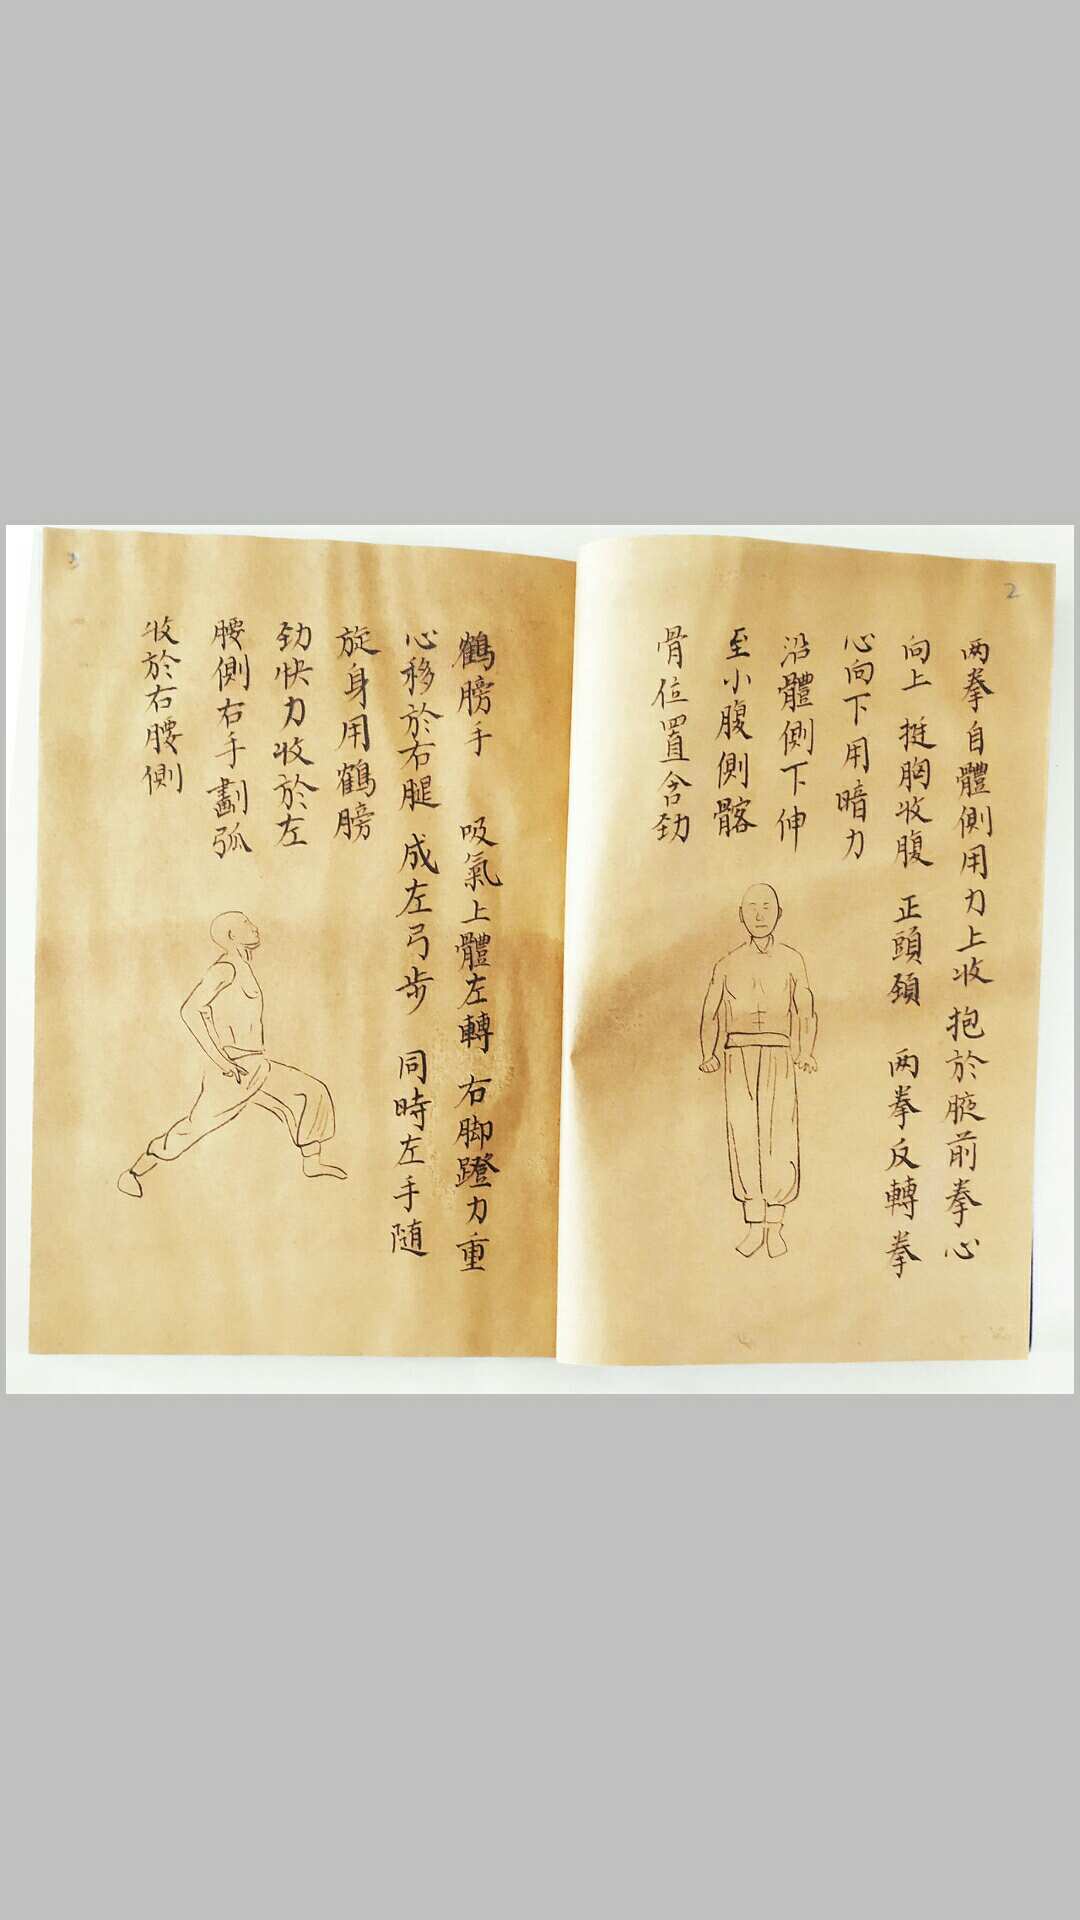 2
两拳自體側用力上收 抱於腋前拳心
向上 挺胸收腹 正頭頸 两拳反轉拳
心向下用暗力
沿體側下伸
至小腹側髂
骨位置含劲
3
鶴膀手 吸氣上體左轉 右脚蹬力重
心移於右腿 成左弓步 同時左手随
旋身用鶴膀
劲快力收於左
腰側右手劃弧
收於右腰側